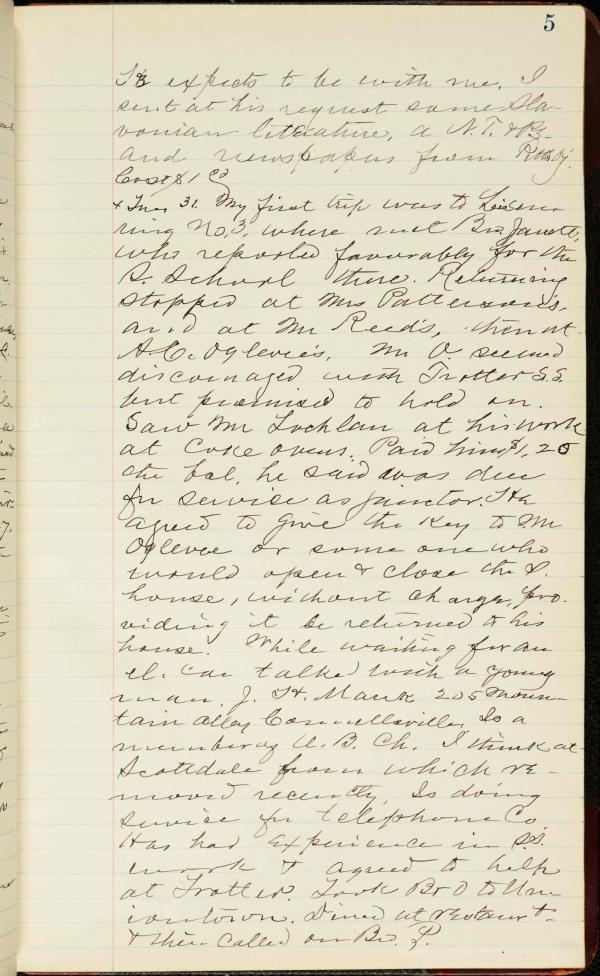 5
He expects to be with me. I
sent at his request some Sla-
vonian literature, a N.T. &
and newspapers from
Cost $1
31. My first trip was to Leisen-
ring No. 3. where met Bro
who reported favourably for the
S. School there. Returning
stopped at Mrs Patterson's,
and at Mr Reed's, then at
A. C. Oglevee's. Mr O. seemed
discouraged with Trotter S.S.
but promised to hold on.
Saw Mr Lochlan at his work
at Coke ovens. Paid him $1,25
the bal. he said was due
for service as janitor. He
agreed to give the Key to Mr
Oglevee or some one who
would open & close the S.
house, without charge, pro-
viding it be returned to his
house. While waiting for an
el. car talked with a young
man. J. H. Mauk 205 Moun-
tain alley Connellsville. Is a
member of U. B. Ch. I think at
Scottdale from which re-
moved recently. Is doing
service for telephone Co.
Has had experience in S.S.
work & agreed to help
at Trotter. Took Br O to Un-
iontown. Dined at restaur't
& then called on Br.